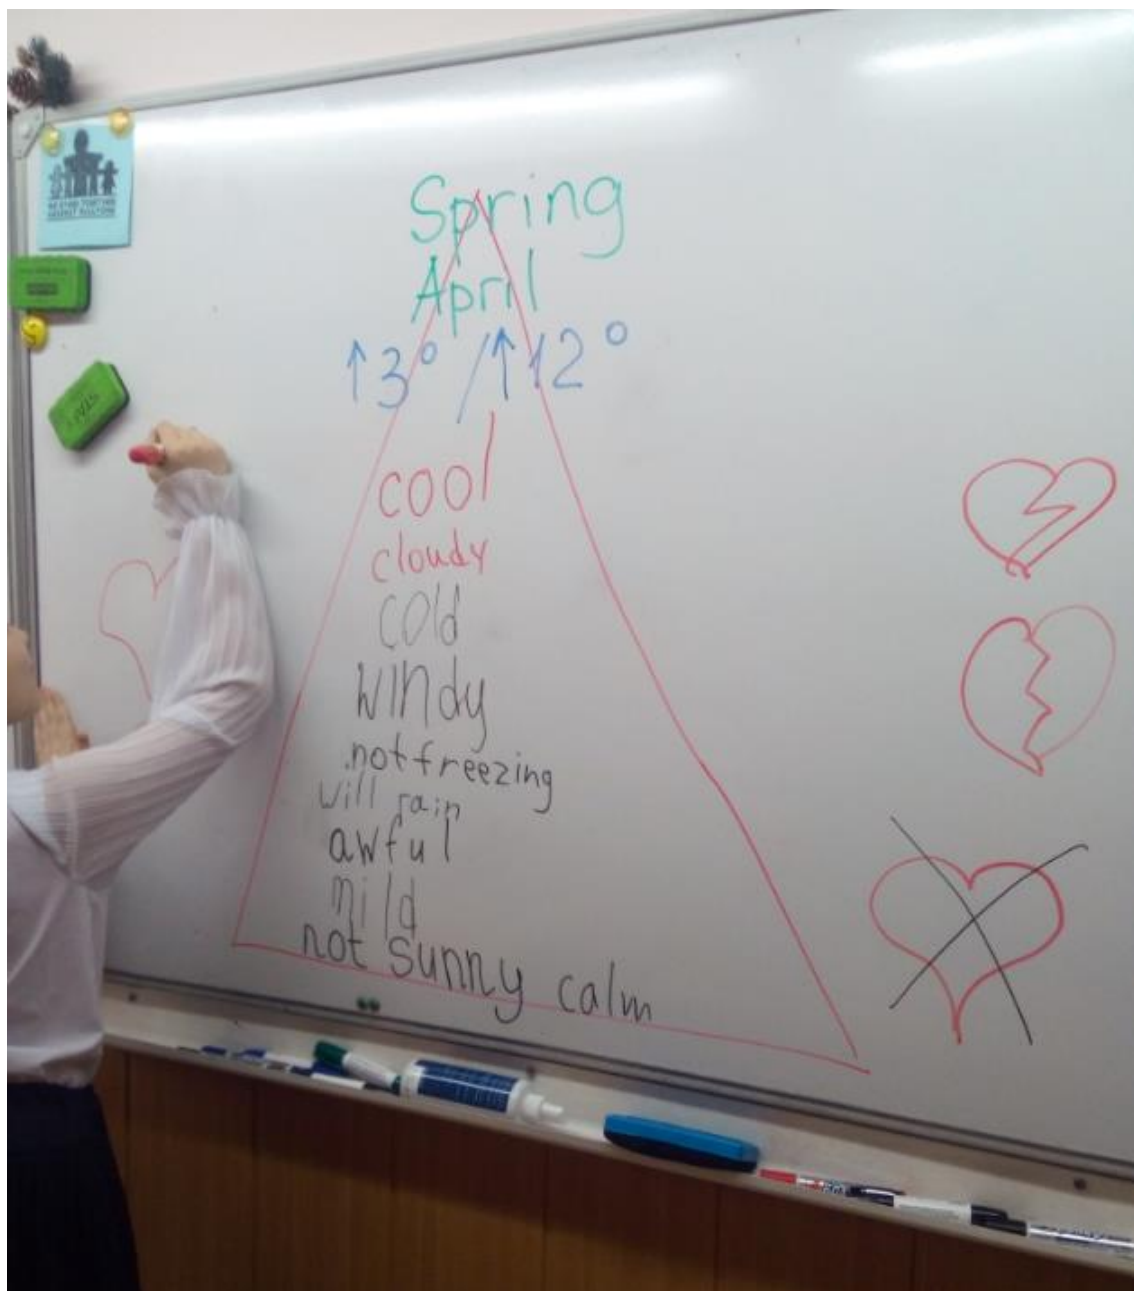 Spring
April
↑3° / ↑12°
cool
cloudy
cold
windy
not freezing
will rain
awful
mild
not sunny calm